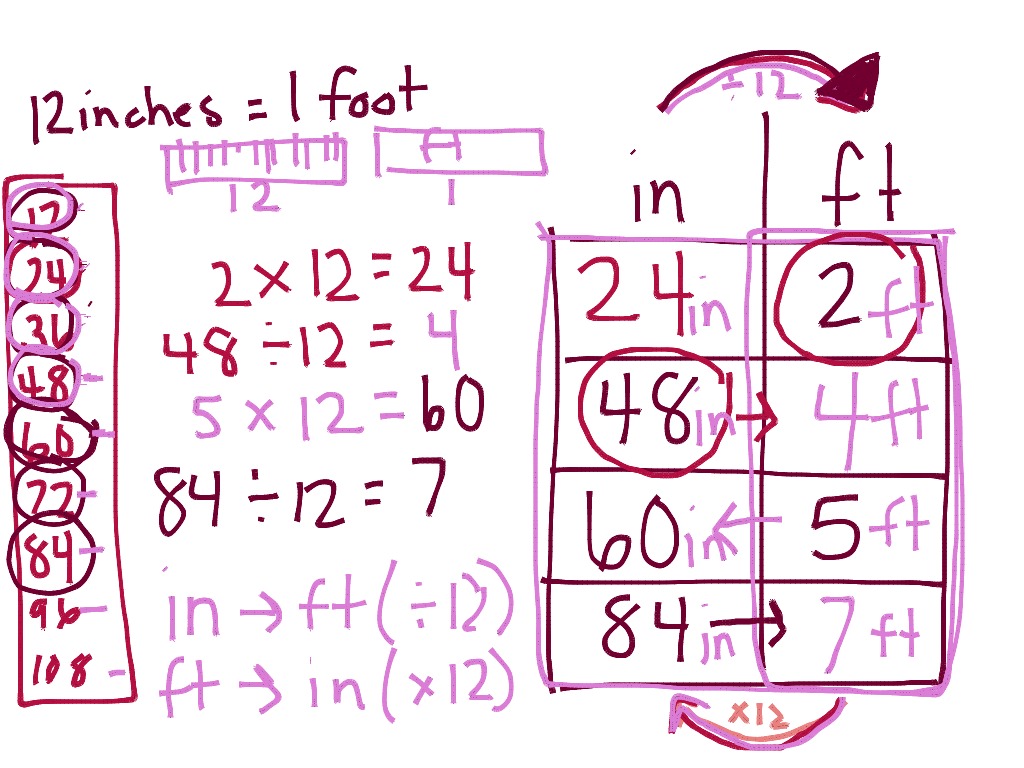 12 inches = 1 foot
ft
12
1
12
24
36
48
60
72
84
96
108
2 × 12 = 24
48 ÷ 12 = 4
5 × 12 = 60
84 ÷ 12 = 7
in → ft (÷12)
ft → in (×12)
÷12
in ft
24 in 2 ft
48 in → 4 ft
60 in ← 5 ft
84 in → 7 ft
×12